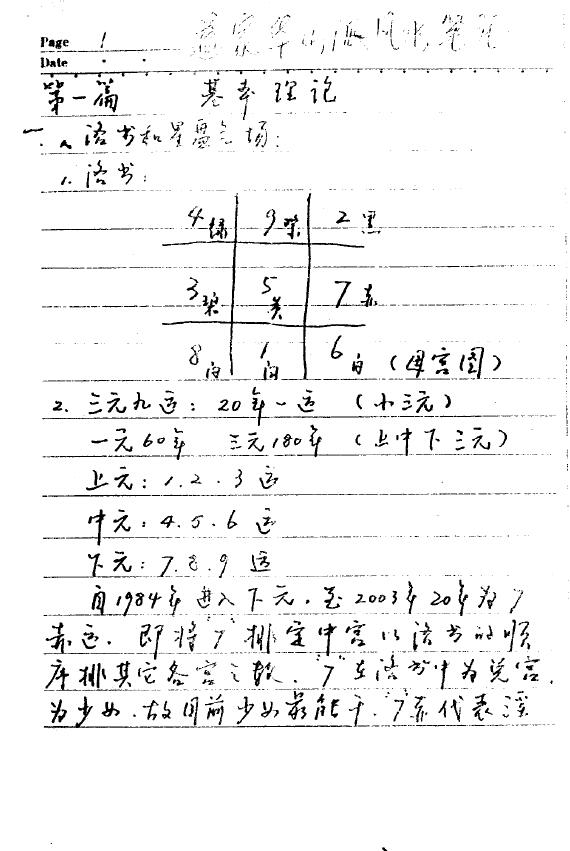 Page 1
Date
第一篇 基本理论
一. 洛书和星盘气场:
1. 洛书:
4绿 9紫 2黑
3碧 5黄 7赤
8白 1白 6白 (母宫图)
2. 三元九运: 20年一运 (小三元)
一元60年 三元180年 (上中下三元)
上元: 1.2.3运
中元: 4.5.6运
下元: 7.8.9运
自1984年进入下元.至2003年20年为7
赤运.即将"7"排定中宫以洛书的顺
序排其它各宫之数."7"在洛书中为兑宫.
为少女.故目前少女最能干."7"赤代表